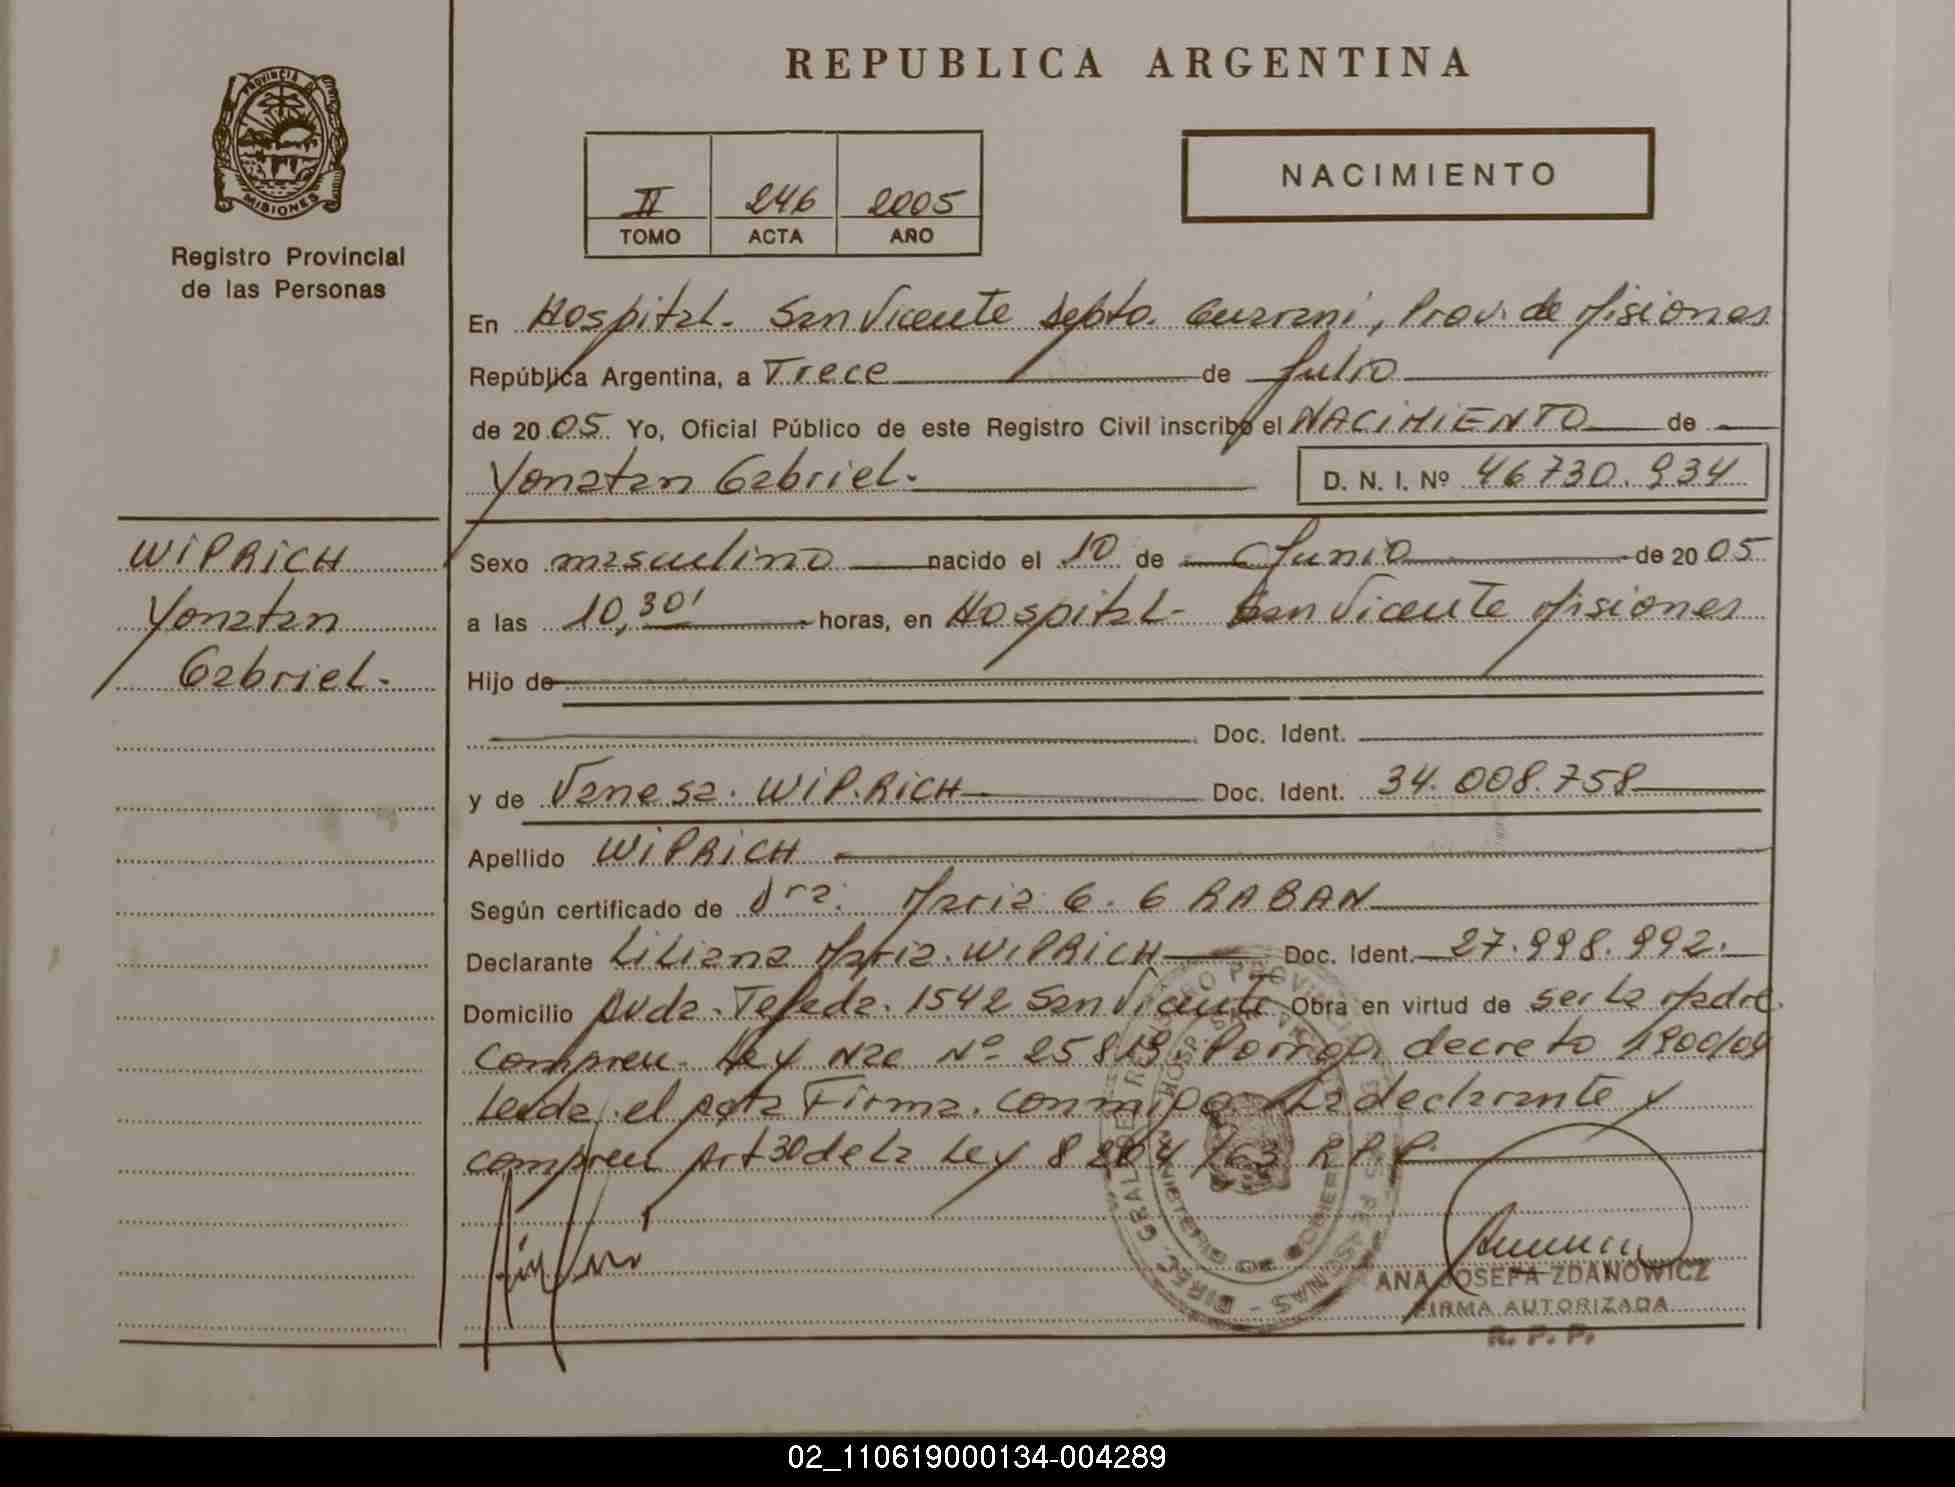 REPUBLICA ARGENTINA
PROVINCIA DE
MISIONES
Registro Provincial
de las Personas
II 246 2005
TOMO ACTA AÑO
NACIMIENTO
En Hospital- San Vicente Depto. Guarani, Prov. de Misiones
República Argentina, a Trece de Julio
de 2005 Yo, Oficial Público de este Registro Civil inscribo el NACIMIENTO de
Yonatan Gabriel.
D. N. I. Nº 46730.934
WIPRICH
Yonatan
Gabriel.-
Sexo masculino nacido el 10 de Junio de 2005
a las 10,30' horas, en Hospital- San Vicente Misiones
Hijo de
Doc. Ident.
y de Vanesa. WIPRICH Doc. Ident. 34.008.758
Apellido WIPRICH
Según certificado de Dra. Maria G. GRABAN
Declarante Liliana Maria. WIPRICH Doc. Ident. 27.998.992.
Domicilio Avda. Tejeda. 1542 San Vicente Obra en virtud de ser la Madre.
Ley Nac Nº decreto 1900/04
Leida el acta Firma. conmigo La declarante y
Art 30 de la Ley 8204/63 R.P.P.
ANA JOSEFA ZDANOWICZ
FIRMA AUTORIZADA
R. P. P.
02_110619000134-004289